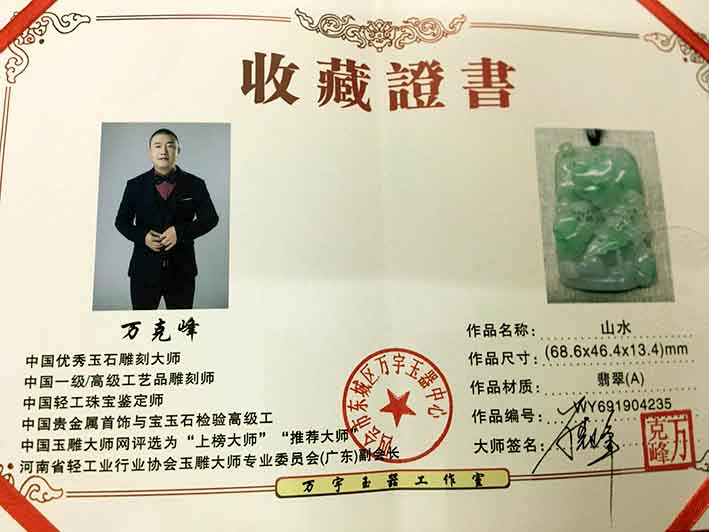 收藏證書
万克峰
中国优秀玉石雕刻大师
中国一级/高级工艺品雕刻师
中国轻工珠宝鉴定师
中国贵金属首饰与宝玉石检验高级工
中国玉雕大师网评选为“上榜大师”“推荐大师”
河南省轻工业行业协会玉雕大师专业委员会(广东)副会长
四会市东城区万宇玉器中心
作品名称: 山水
作品尺寸: (68.6x46.4x13.4)mm
作品材质: 翡翠(A)
作品编号: WY691904235
大师签名: 万克峰
万克峰
万宇玉器工作室